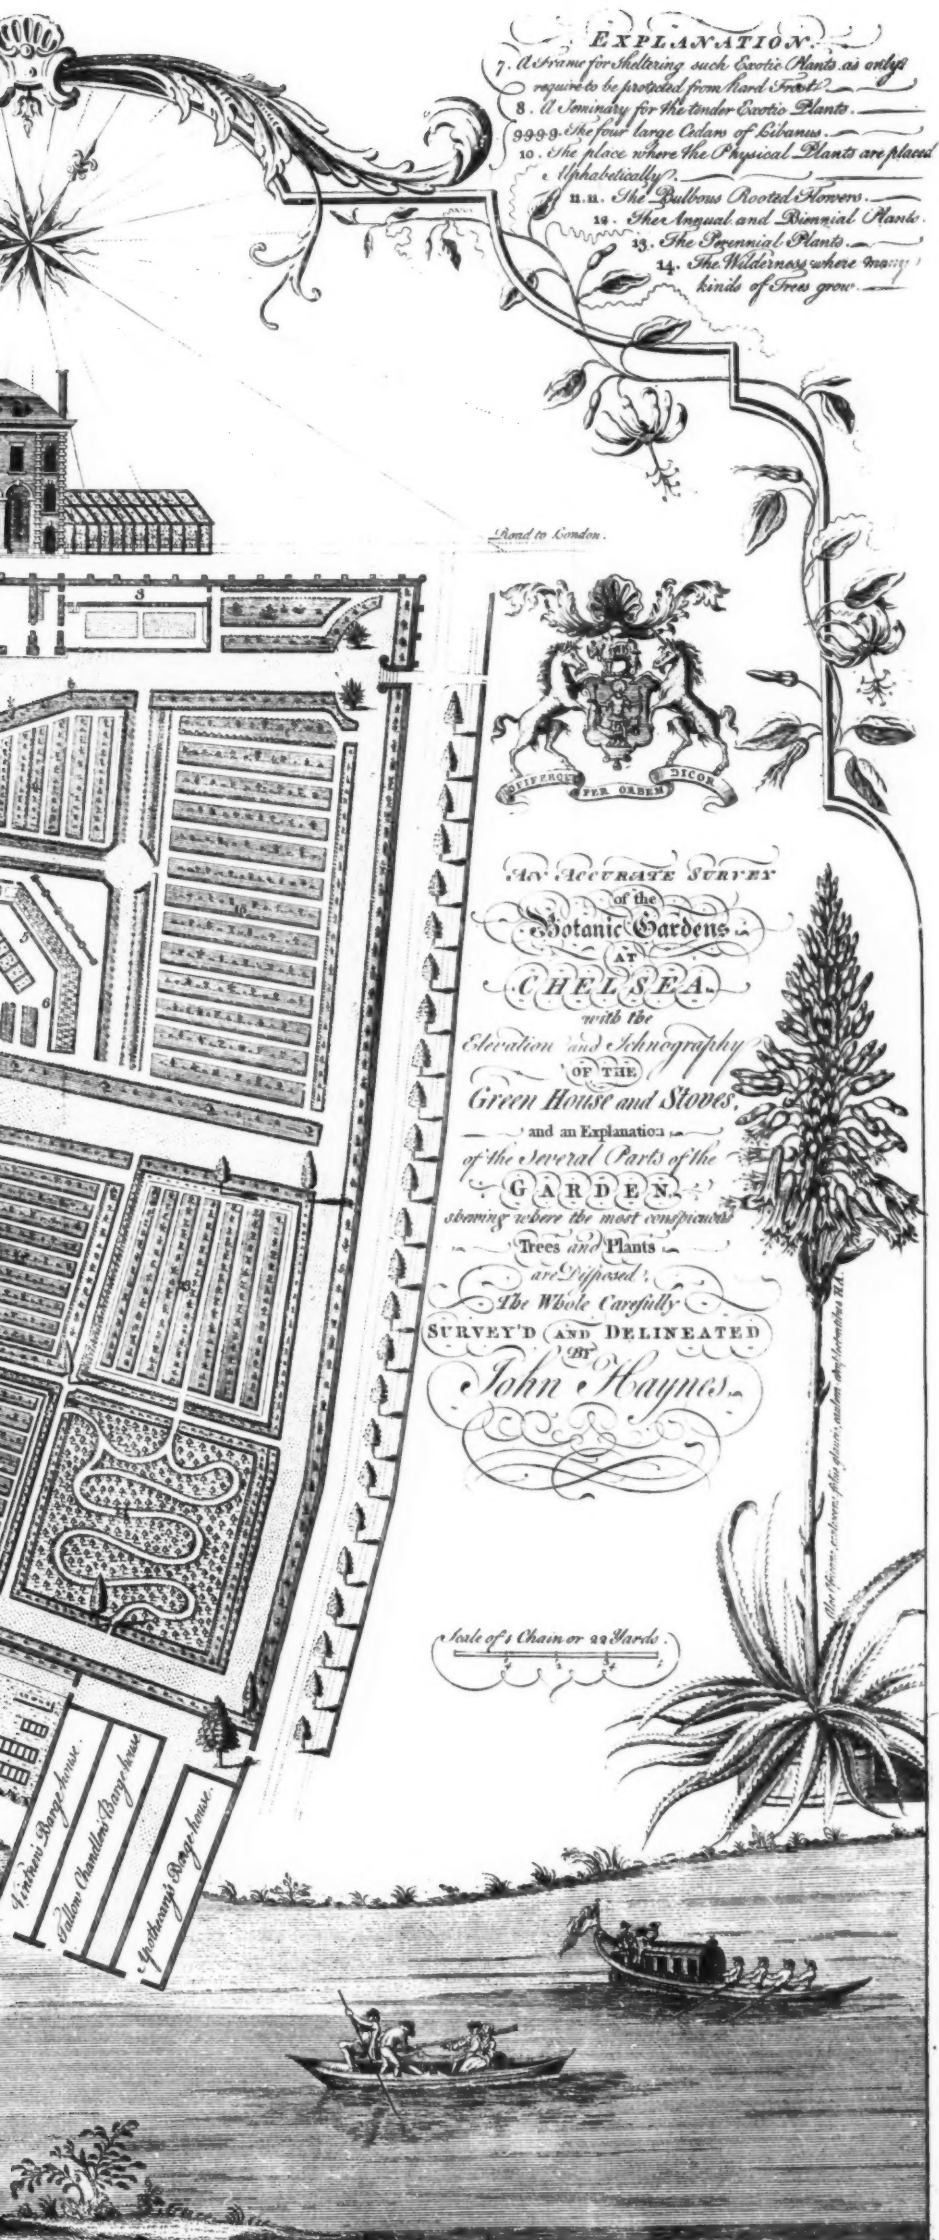 EXPLANATION.
7. A Frame for Sheltering such Exotic Plants as only
require to be protected from hard Frost.
8. A Seminary for the tender Exotic Plants.
9.9.9.9. The four large Cedars of Libanus.
10. The place where the Physical Plants are placed
Alphabetically.
11.11. The Bulbous Rooted Flowers.
12. The Annual and Biennial Plants.
13. The Perennial Plants.
14. The Wilderness where many
kinds of Trees grow.
Road to London.
8
OPIFERQUE PER ORBEM DICOR
AN ACCURATE SURVEY
of the
Botanic Gardens
AT
CHELSEA.
with the
Elevation and Ichnography
OF THE
Green House and Stoves,
and an Explanation
of the Several Parts of the
GARDEN
shewing where the most conspicuous
Trees and Plants
are Disposed.
The Whole Carefully
SURVEY'D AND DELINEATED
BY
John Haynes.
5
6
Scale of 1 Chain or 22 Yards.
Vintners Barge house.
Tallow Chandlers Barge house
Apothecarys Barge-house.